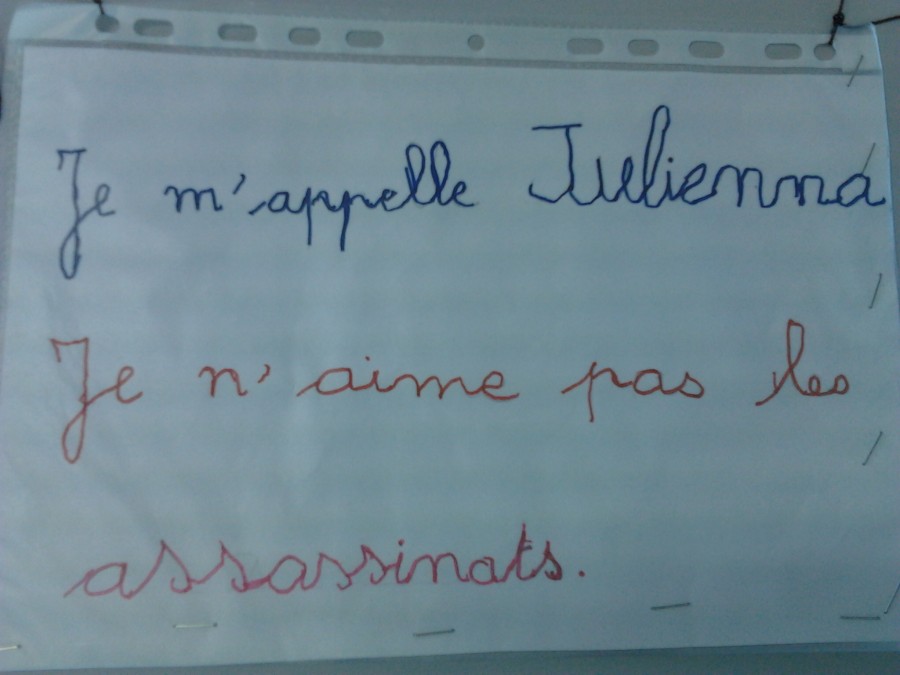 Je m'appelle Julienna
Je n'aime pas les
assassinats.